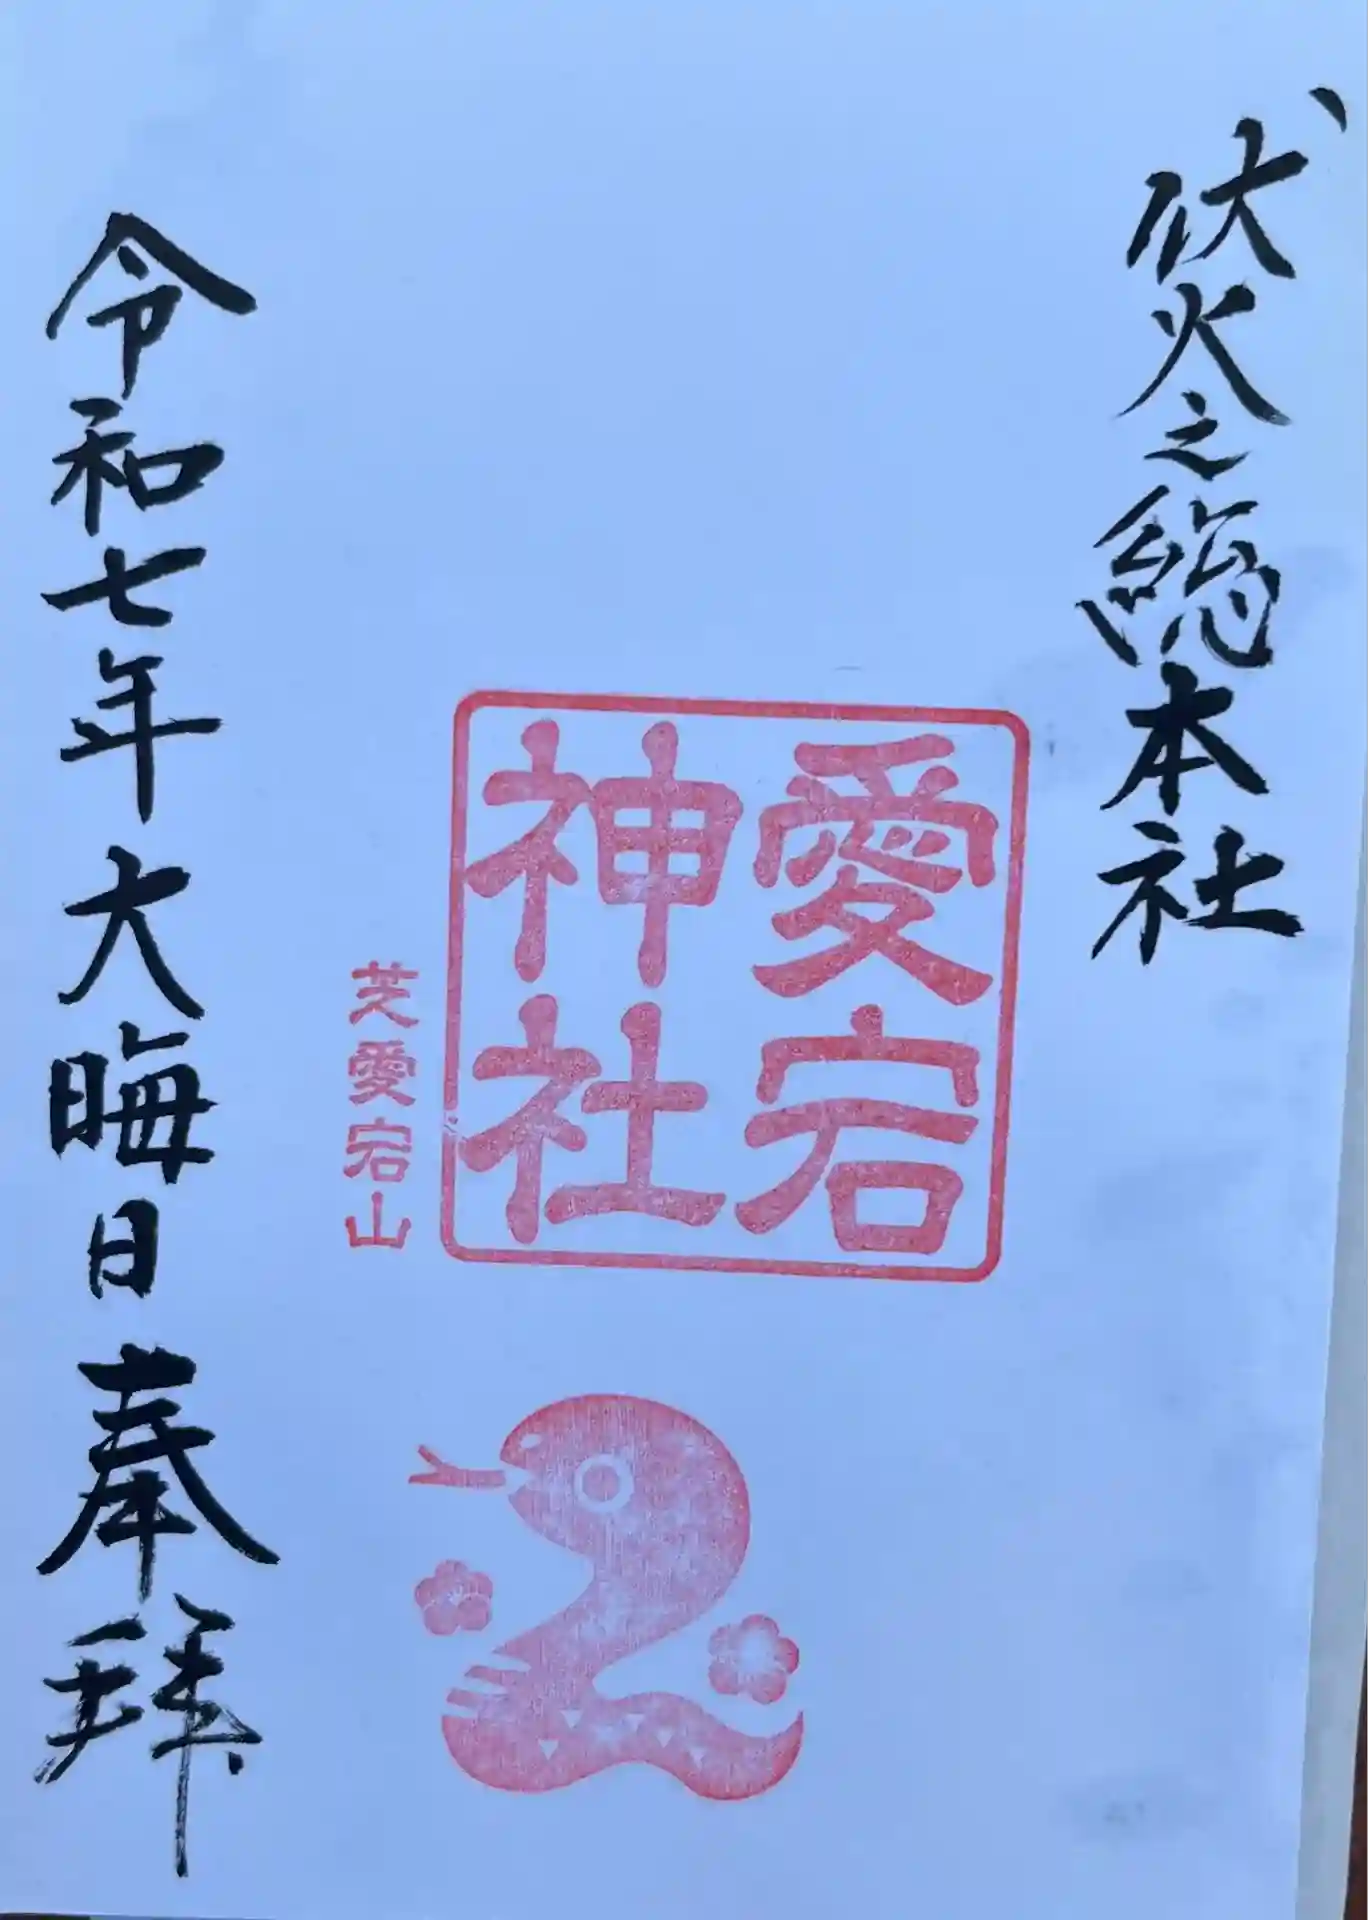 伏火之総本社
愛宕
神社
芝愛宕山
令和七年大晦日奉拜